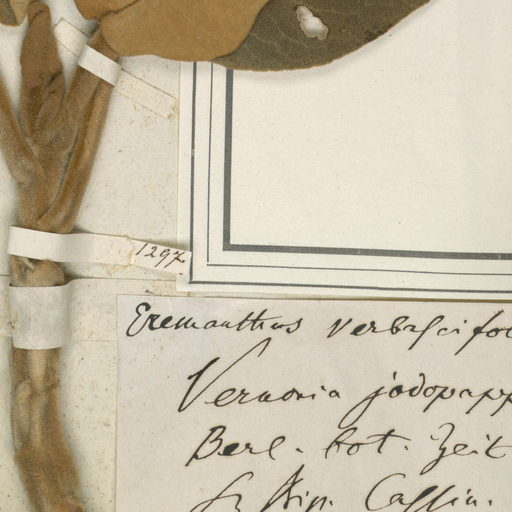 1297.
Eremanthus verbascifol
Vernonia jodopapp
Berl. bot. Zeit